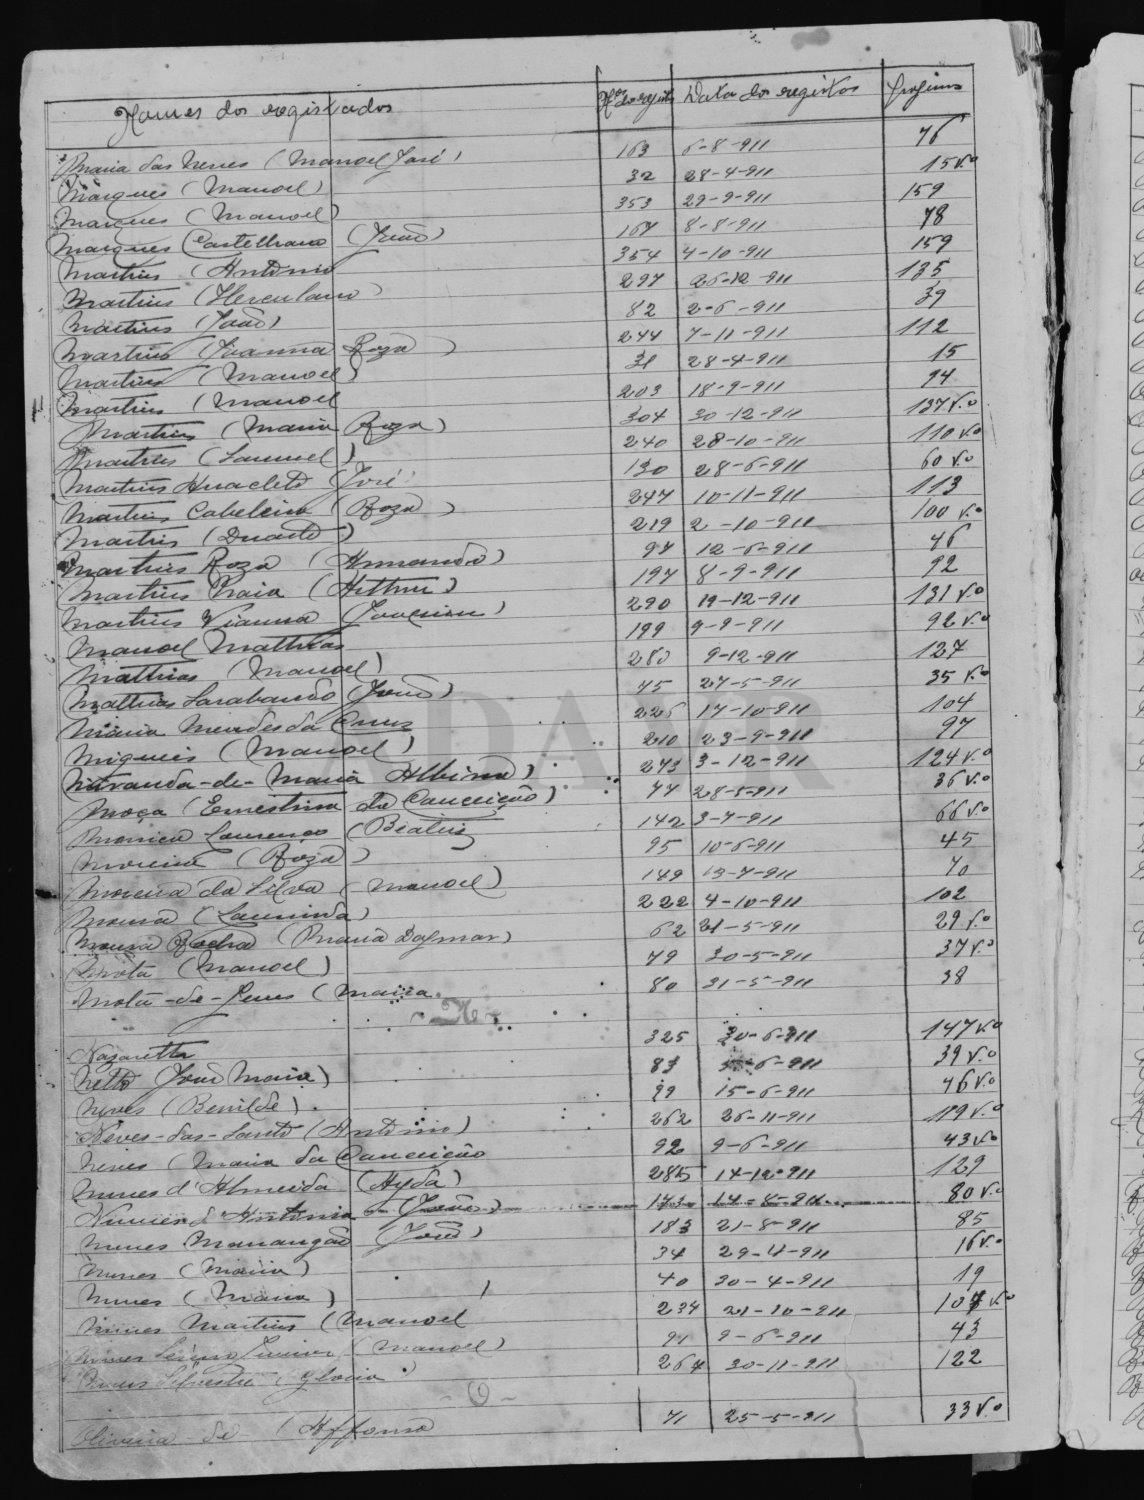 Nomes dos registados Nos do registo Data dos registos Paginas
Maria das Neves (Manoel José) 163 6-8-911 76
Marques (Manoel) 32 28-4-911 15 v.o
Marques (Manoel) 353 29-9-911 159
Marques Castelhano (João) 167 8-8-911 78
Martins (Antonio 354 4-10-911 159
Martins (Herculano) 297 26-12-911 135
Martins (João) 82 2-6-911 39
Martins (Joanna Roza) 244 7-11-911 112
Martins (Manoel) 31 28-4-911 15
Martins (Manoel 203 18-9-911 94
Martins (Maria Roza) 304 30-12-911 137 v.o
Martins (Samuel) 240 28-10-911 110 v.o
Martins Anacleto (José 130 28-6-911 60 v.o
Martins Cabeleira (Roza) 247 10-11-911 113
Martins (Duarte) 219 2-10-911 100 v.o
Martins Roza (Armando) 97 12-6-911 46
Martins Praia (Arthur) 197 8-9-911 92
Martins Vianna (Joaquim) 290 19-12-911 131 v.o
Manoel Mathias 199 9-9-911 92 v.o
Mathias (Manoel) 280 9-12-911 127
Mathias Sarabando (João) 75 27-5-911 35 v.o
Maria Mendes da Cruz 226 17-10-911 104
Migueis (Manoel) 210 23-9-911 97
Miranda-de-Maria Albina) 273 3-12-911 124 v.o
Moça (Ernestina da Conceição) 77 28-5-911 36 v.o
Monica Lourenço (Beatriz 142 3-7-911 66 v.o
Moreira (Roza) 95 10-6-911 45
Moreira da Silva (Manoel) 149 13-7-911 70
Moura (Laurinda) 222 4-10-911 102
Moura Rocha (Maria Dagmar) 62 21-5-911 29 v.o
Motta (Manoel) 79 30-5-911 37 v.o
Mota-de-Jesus (Maria 80 31-5-911 38
-N-
Nazareth 325 30-6-911 147 v.o
Netto (João Maria) 83 -6-911 39 v.o
Neves (Benilde) 99 15-6-911 46 v.o
Neves-dos-Santos (Antonio) 262 26-11-911 119 v.o
Neves (Maria da Conceição 92 9-6-911 43 v.o
Nunes d'Almeida (Ayda) 285 14-12-911 129
Nunes d'Antonia (João) 173 14-8-911 80 v.o
Nunes Manangão (João) 183 21-8-911 85
Nunes (Maria) 34 29-4-911 16 v.o
Nunes (Maria) 40 30-4-911 19
Nunes Martins (Manoel 234 21-10-911 107 v.o
Nunes Junior (Manoel) 91 9-6-911 43
Nunes Silvestre (Gloria) 264 30-11-911 122
-O-
Oliveira-de (Affonso 71 25-5-911 33 v.o
ADAVR